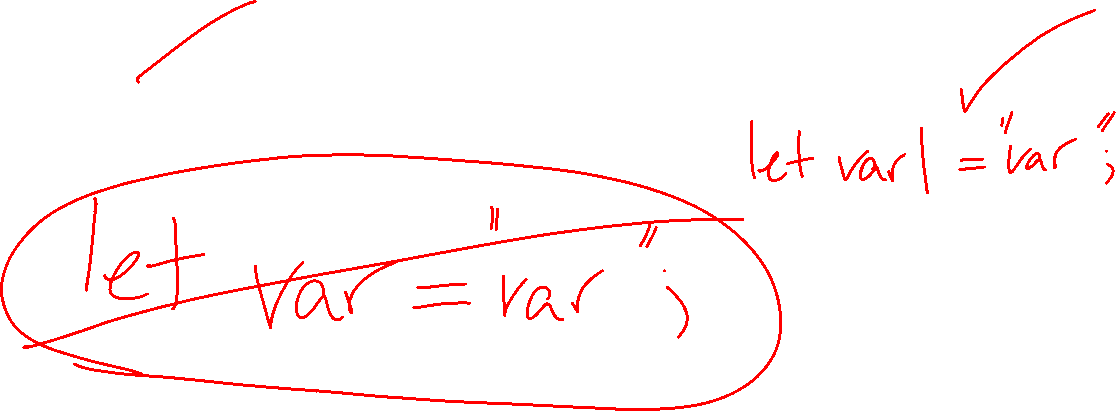 let var1 = "var";
let var = "var";